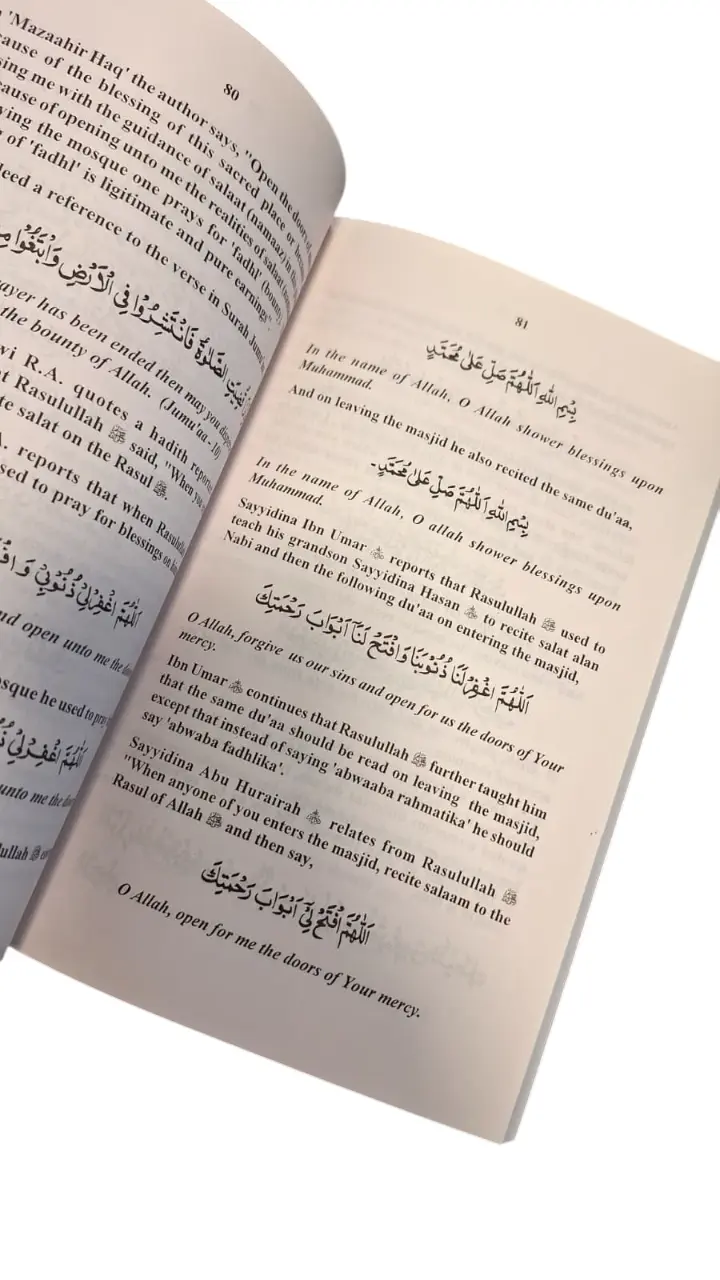 80
'Mazaahir Haq' the author says, "Open the doors of
cause of the blessing of this sacred place or
sing me with the guidance of salaat (namaaz) in
cause of opening unto me the realities of salaat
ving the mosque one prays for 'fadhl' (bounty)
of 'fadhl' is ligitimate and pure earnings".
deed a reference to the verse in Surah Jumu'
قُضِيَتِ الصَّلٰوةُ فَانْتَشِرُوْا فِى الْاَرْضِ وَابْتَغُوْا
rayer has been ended then may you
the bounty of Allah. (Jumu'aa- 10)
wi R.A. quotes a hadith
at Rasulullah ﷺ said, "When you
te salat on the Rasul ﷺ.
A. reports that when
sed to pray for blessings on
اَللّٰهُمَّ اغْفِرْلِىْ ذُنُوْبِىْ وَ
nd open unto me the
sque he used to pray
اَللّٰهُمَّ اغْفِرْلِىْ
unto me the door
ullah ﷺ
81
بِسْمِ اللّٰهِ اَللّٰهُمَّ صَلِّ عَلٰى مُحَمَّدٍ
In the name of Allah, O Allah shower blessings upon
Muhammad.
And on leaving the masjid he also recited the same du'aa,
بِسْمِ اللّٰهِ اَللّٰهُمَّ صَلِّ عَلٰى مُحَمَّدٍ۔
In the name of Allah, O allah shower blessings upon
Muhammad.
Sayyidina Ibn Umar reports that Rasulullah ﷺ used to
teach his grandson Sayyidina Hasan to recite salat alan
Nabi and then the following du'aa on entering the masjid,
اَللّٰهُمَّ اغْفِرْلَنَا ذُنُوْبَنَا وَافْتَحْ لَنَآ اَبْوَابَ رَحْمَتِكَ
O Allah, forgive us our sins and open for us the doors of Your
mercy.
Ibn Umar continues that Rasulullah ﷺ further taught him
that the same du'aa should be read on leaving the masjid,
except that instead of saying 'abwaaba rahmatika' he should
say 'abwaba fadhlika'.
Sayyidina Abu Hurairah relates from Rasulullah ﷺ
"When anyone of you enters the masjid, recite salaam to the
Rasul of Allah ﷺ and then say,
اَللّٰهُمَّ افْتَحْ لِىْٓ اَبْوَابَ رَحْمَتِكَ
O Allah, open for me the doors of Your mercy.